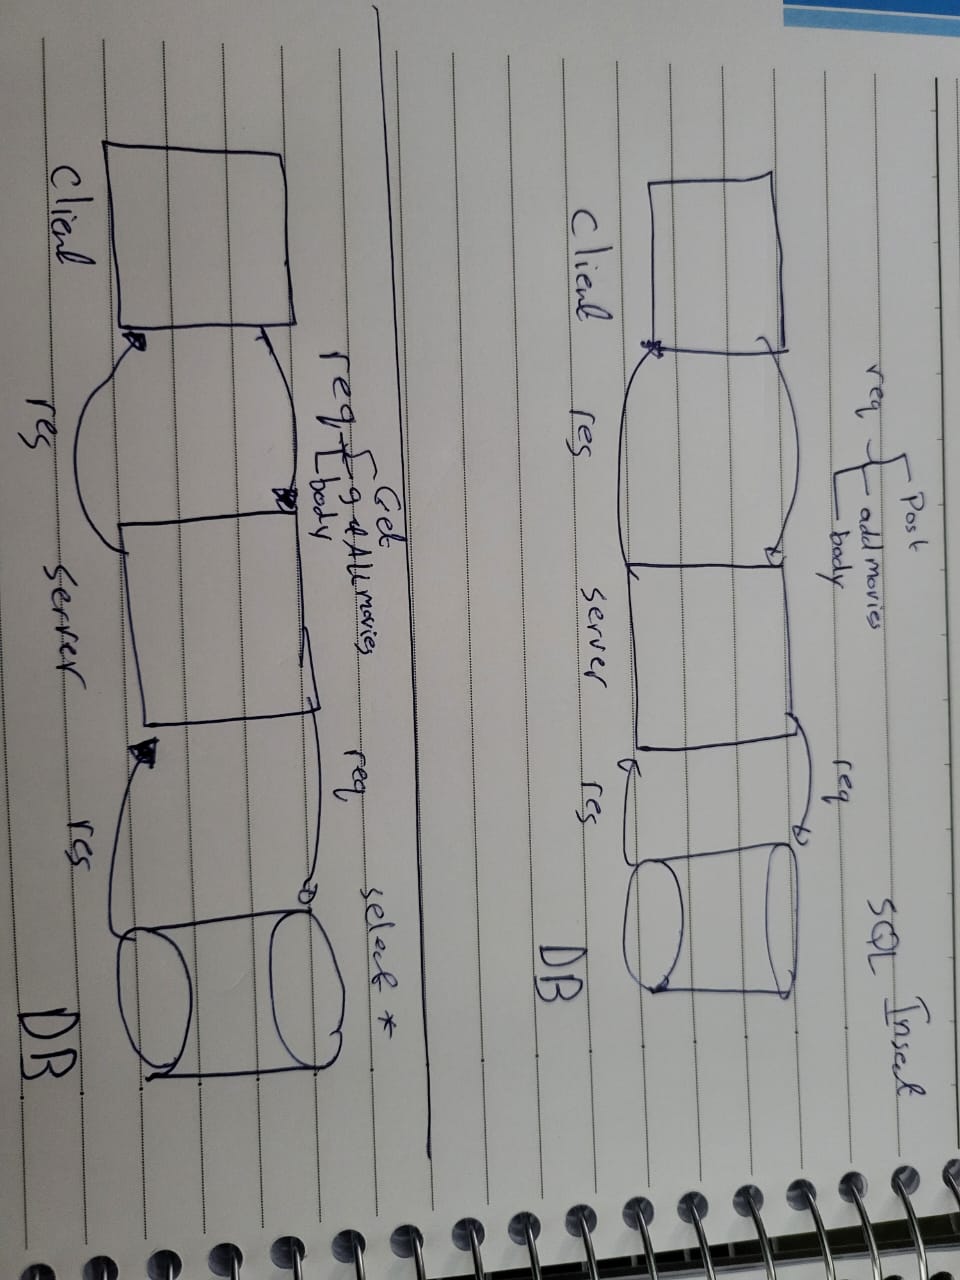 Post
req
add movies
body
req
SQL Insert
Client
res
server
res
DB
Get
req
get ALL movies
body
req
select *
Client
res
server
res
DB